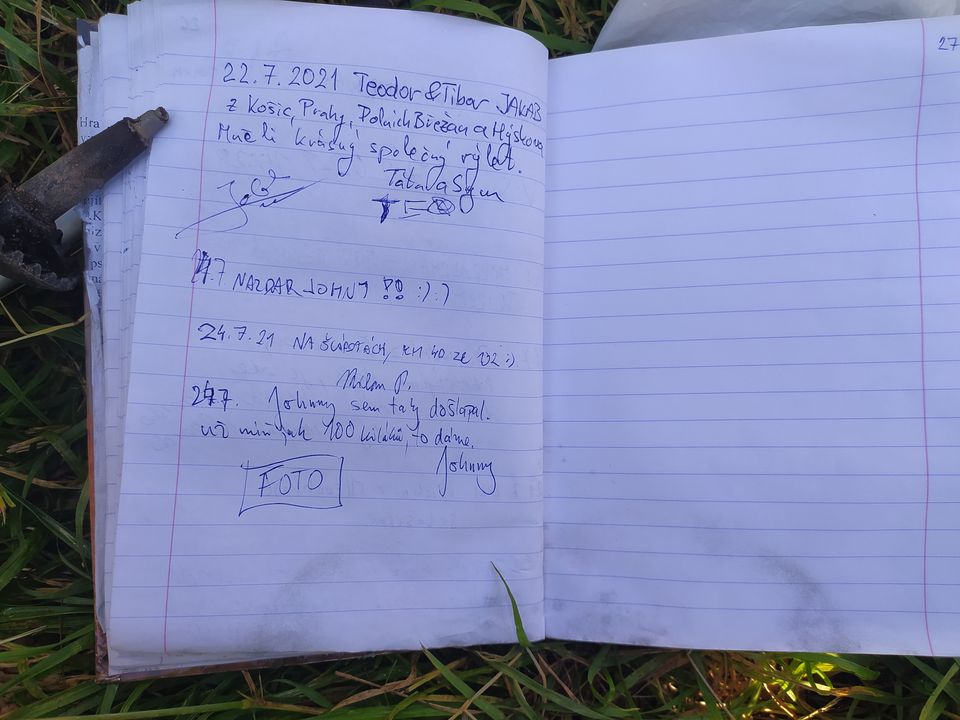 27
22.7.2021 Teodor & Tibor JAKAB
z Košic, Prahy, Dolních Břežan a Hýskova
Měli krásný společný výlet.
Táta a Syn
TEO
24.7 NAZDAR JOHNY !! :) :)
24.7.21 NA ŠLÁPOTÁCH, KM 40 ZE 132 :)
Milan P.
24.7. Johnny sem taky došlapal.
už míň jak 100 kiláků, to dáme.
Johnny
FOTO